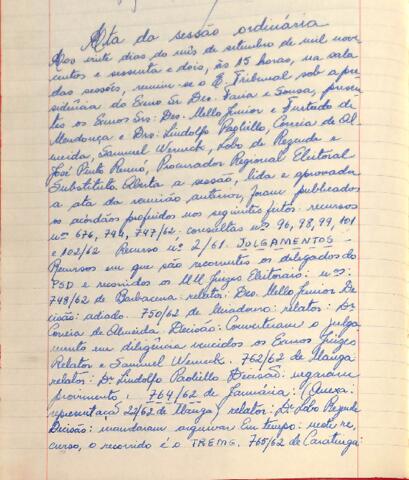 Ata da sessão ordinária
Aos vinte dias do mês de setembro de mil nove
centos e sessenta e dois, às 15 horas, na sala
das sessões, reuniu-se o E. Tribunal sob a pre
sidência do Exmo Sr Des. Faria e Sousa, presen
tes os Exmos Srs: Des. Mello Junior e Furtado de
Mendonça e Drs: Lindolfo Paoliello, Correia de Al
meida, Samuel Werneck, Lobo de Rezende e
José Pinto Rennó, Procurador Regional Eleitoral
Substituto. Aberta a sessão, lida e aprovada
a ata da reunião anterior, foram publicados
os acórdãos proferidos nos seguintes feitos: recursos
nºs 676, 794, 747/62. consultas nºs 96, 98, 99, 101
e 102/62 Recurso nº 2/61. JULGAMENTOS
Recursos em que são recorrentes os delegados do
PSD e recorridos os MM Juízes Eleitorais: nºs:
748/62 de Barbacena: relator: Des. Mello Junior De
cisão: adiado. 750/62 de Miradouro: relator: Dr
Correia de Almeida. Decisão: Converteram o julga
mento em diligência vencidos os Exmos Juízes
Relator e Samuel Werneck. 762/62 de Manga:
relator: Dr Lindolfo Paoliello Decisão: negaram
provimento; 764/62 de Januária: (Anexa:
representaç 22/62 de Manga), relator: Dr Lobo Rezende
Decisão: mandaram arquivar Em tempo: neste re,
curso, o recorrido é o TREMG. 765/62 de Caratinga: